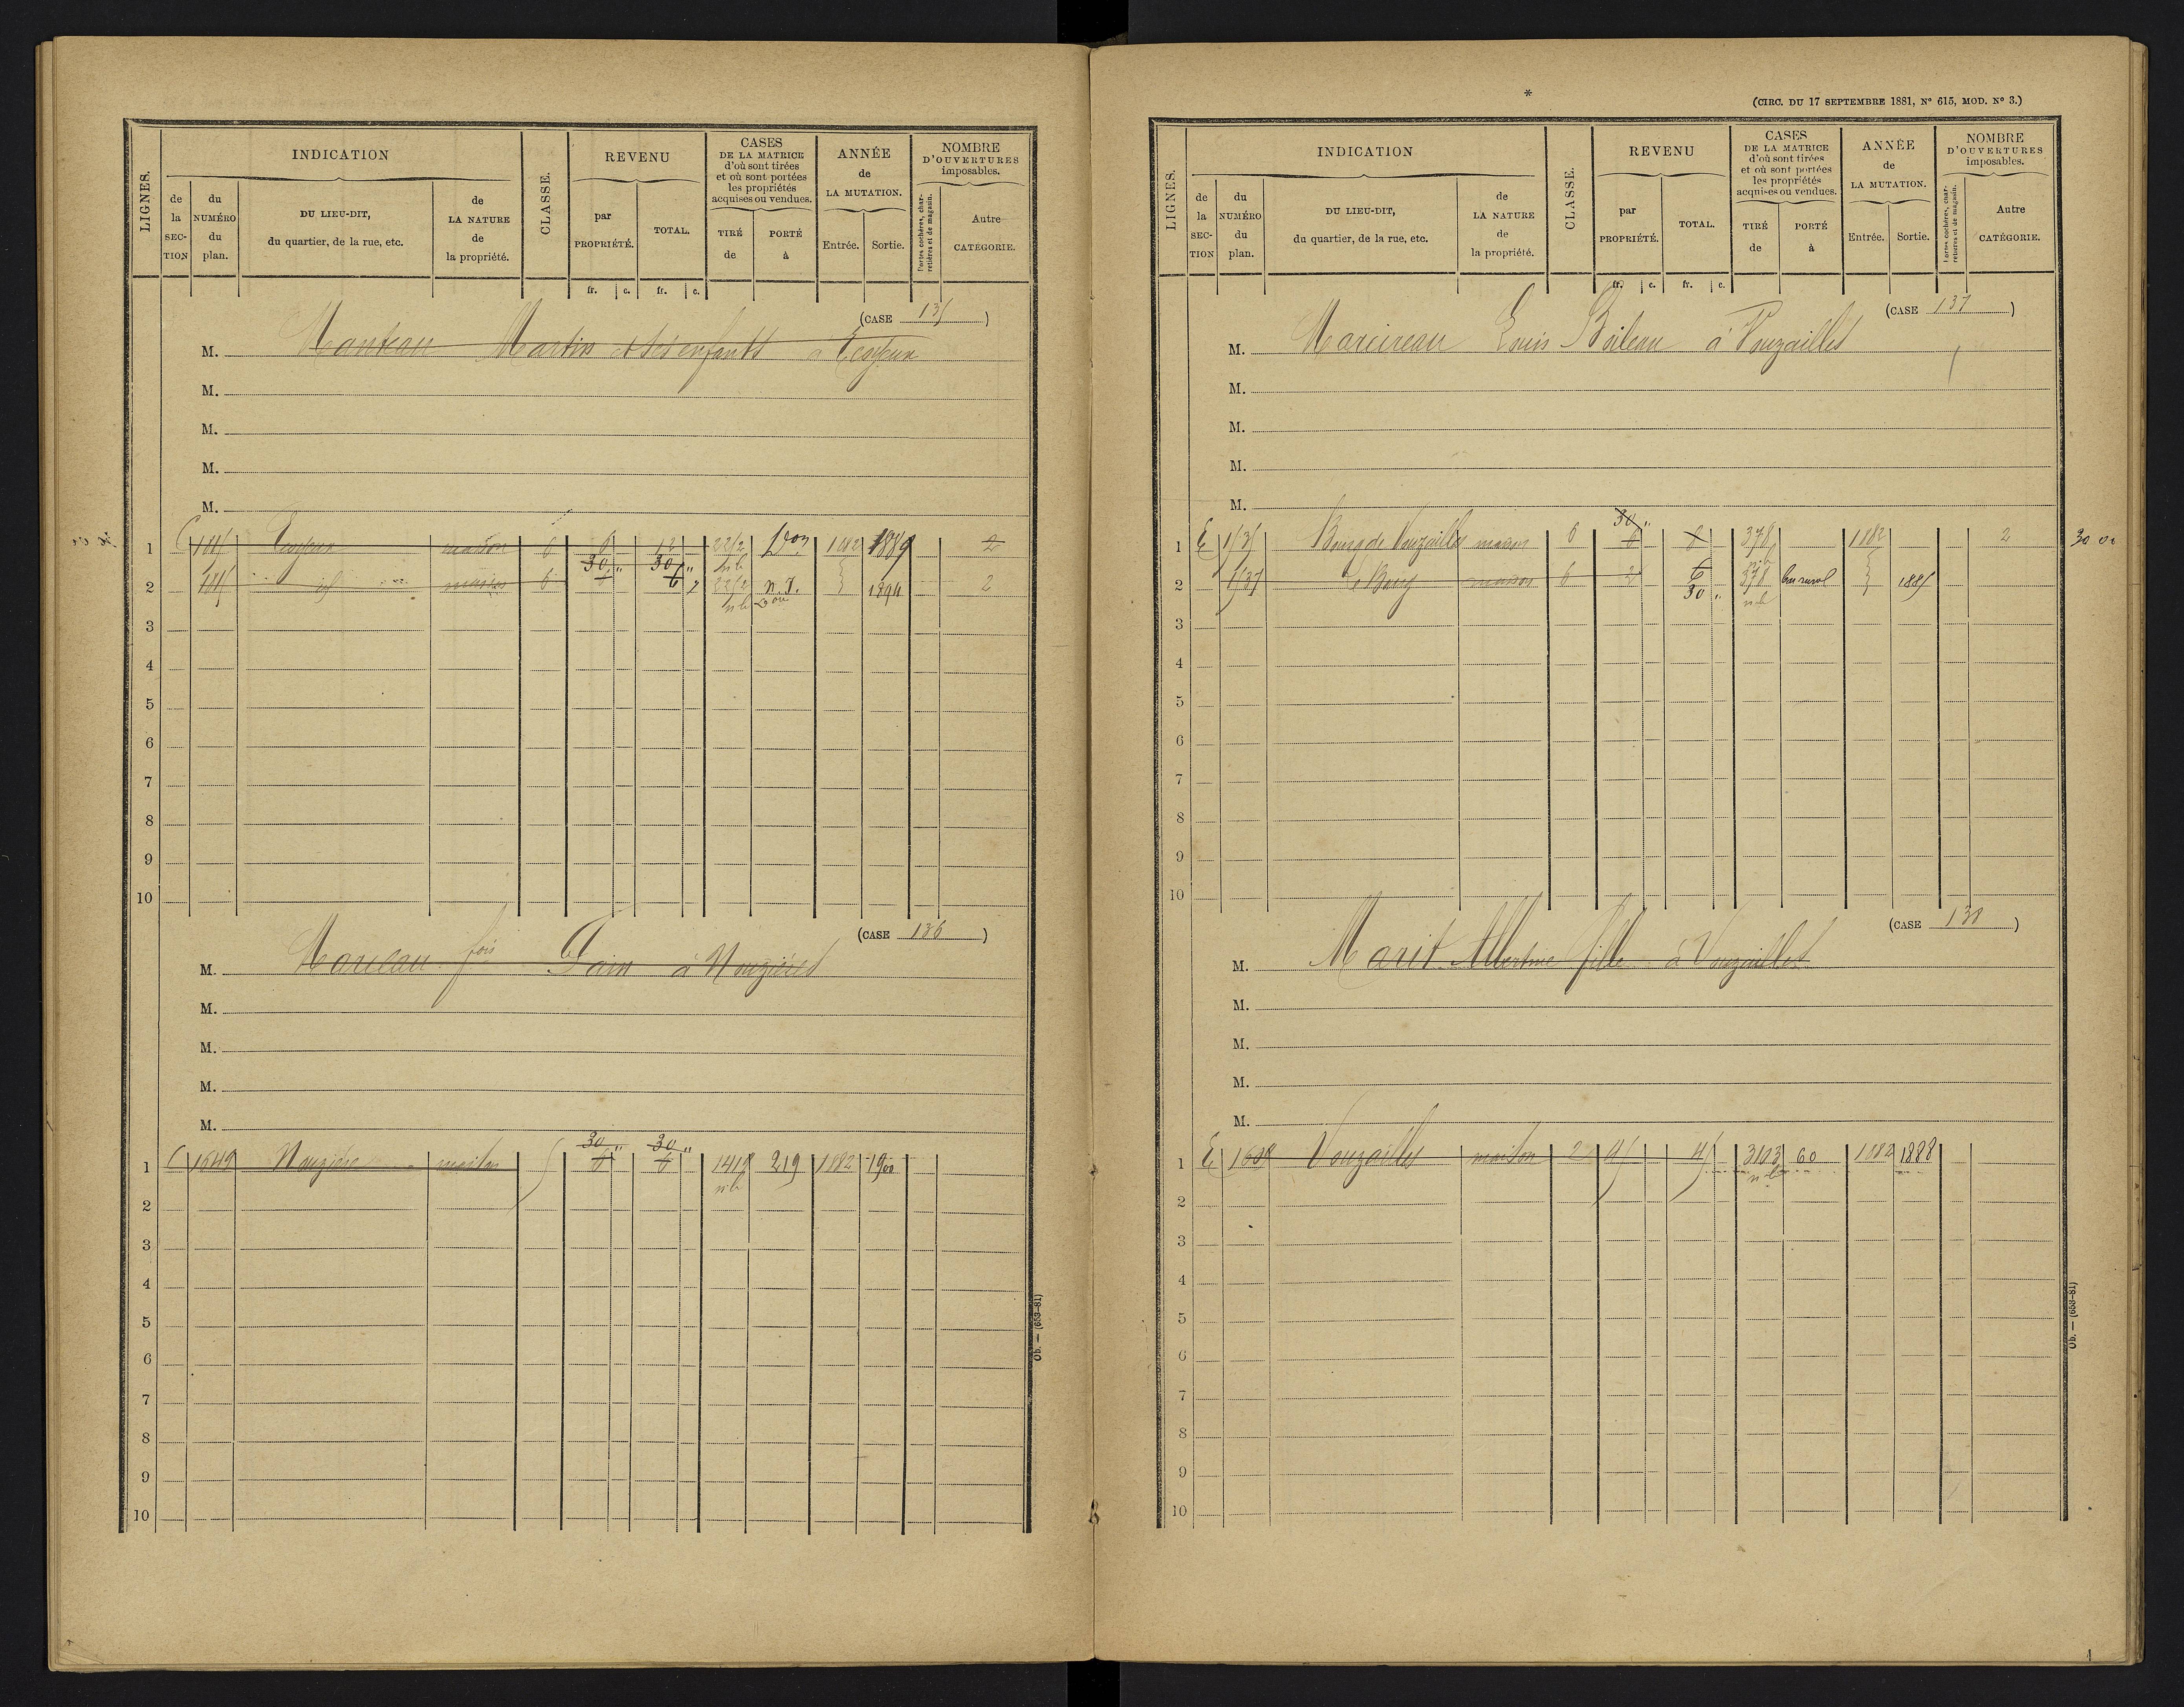 LIGNES.
INDICATION
de la SECTION
du NUMÉRO du plan.
DU LIEU-DIT, du quartier, de la rue, etc.
de LA NATURE de la propriété.
CLASSE.
REVENU
par PROPRIÉTÉ.
TOTAL.
fr. c. fr. c.
CASES DE LA MATRICE d'où sont tirées et où sont portées les propriétés acquises ou vendues.
TIRÉ de
PORTÉ à
ANNÉE de LA MUTATION.
Entrée. Sortie.
NOMBRE D'OUVERTURES imposables.
Portes cochères, charretières et de magasin.
Autre CATÉGORIE.
(CASE 135)
M. Manteau Martin et ses enfants à
M.
M.
M.
M.
1 C maison 6 6 12 Don 1882 1889 2
30 " 30 "
2 id maison 6 6 6 n.I. 1894 2
3
4
5
6
7
8
9
10
(CASE 136)
M. fois à Nouzières
M.
M.
M.
M.
30 " 30 "
1 C 1649 Nouzière maison 5 6 6 219 1882 1900
2
3
4
5
6
7
8
9
10
Ob. — (653-81)
*
(CIRC. DU 17 SEPTEMBRE 1881, N° 615, MOD. N° 3.)
LIGNES.
INDICATION
de la SECTION
du NUMÉRO du plan.
DU LIEU-DIT, du quartier, de la rue, etc.
de LA NATURE de la propriété.
CLASSE.
REVENU
par PROPRIÉTÉ.
TOTAL.
fr. c. fr. c.
CASES DE LA MATRICE d'où sont tirées et où sont portées les propriétés acquises ou vendues.
TIRÉ de
PORTÉ à
ANNÉE de LA MUTATION.
Entrée. Sortie.
NOMBRE D'OUVERTURES imposables.
Portes cochères, charretières et de magasin.
Autre CATÉGORIE.
(CASE 137)
M. Marcireau Louis Boileau à Vouzailles
M.
M.
M.
M.
30 "
1 E Bourg de Vouzailles maison 6 6 8 378 1882 2 30 00
2 Le Bourg maison 6 2 6 378 1885
30 "
3
4
5
6
7
8
9
10
(CASE 138)
M. Marit Albertine fille à Vouzailles
M.
M.
M.
M.
1 E Vouzailles maison 2 45 45 3103 60 1882 1888
2
3
4
5
6
7
8
9
10
Ob. — (653-81)